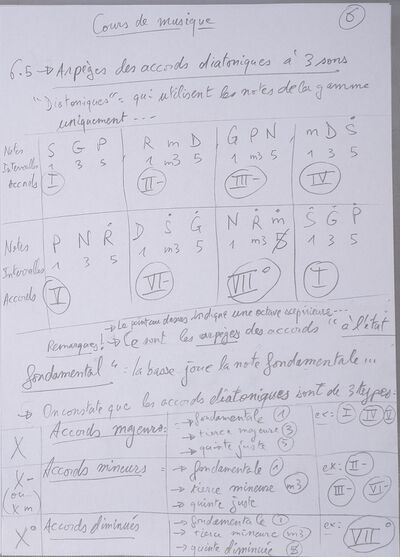 Cours de musique
6
6.5 → Arpèges des accords diatoniques à 3 sons
"Diatoniques" = qui utilisent les notes de la gamme
uniquement ...
Notes S G P R m D G P N m D Ṡ
Intervalles 1 3 5 1 m3 5 1 m3 5 1 3 5
Accords I II- III- IV
Notes P N Ṙ D Ṡ Ġ N Ṙ ṁ Ṡ Ġ Ṗ
Intervalles 1 3 5 1 m3 5 1 m3 5̸ 1 3 5
Accords V VI- VII° I
→ Le point au dessus indique une octave supérieure ...
Remarques! → Ce sont les arpèges des accords "à l'état
fondamental" : la basse joue la note fondamentale ...
→ On constate que les accords diatoniques sont de 3 types:
X Accords majeurs = → fondamentale 1 ex: I IV V
→ tierce majeure 3
→ quinte juste 5
X- Accords mineurs = → fondamentale 1 ex: II-
(ou → tierce mineure m3 III- VI-
Xm) → quinte juste
X° Accords diminués → fondamentale 1 ex: VII°
= → tierce mineure m3
→ quinte diminuée 5̸